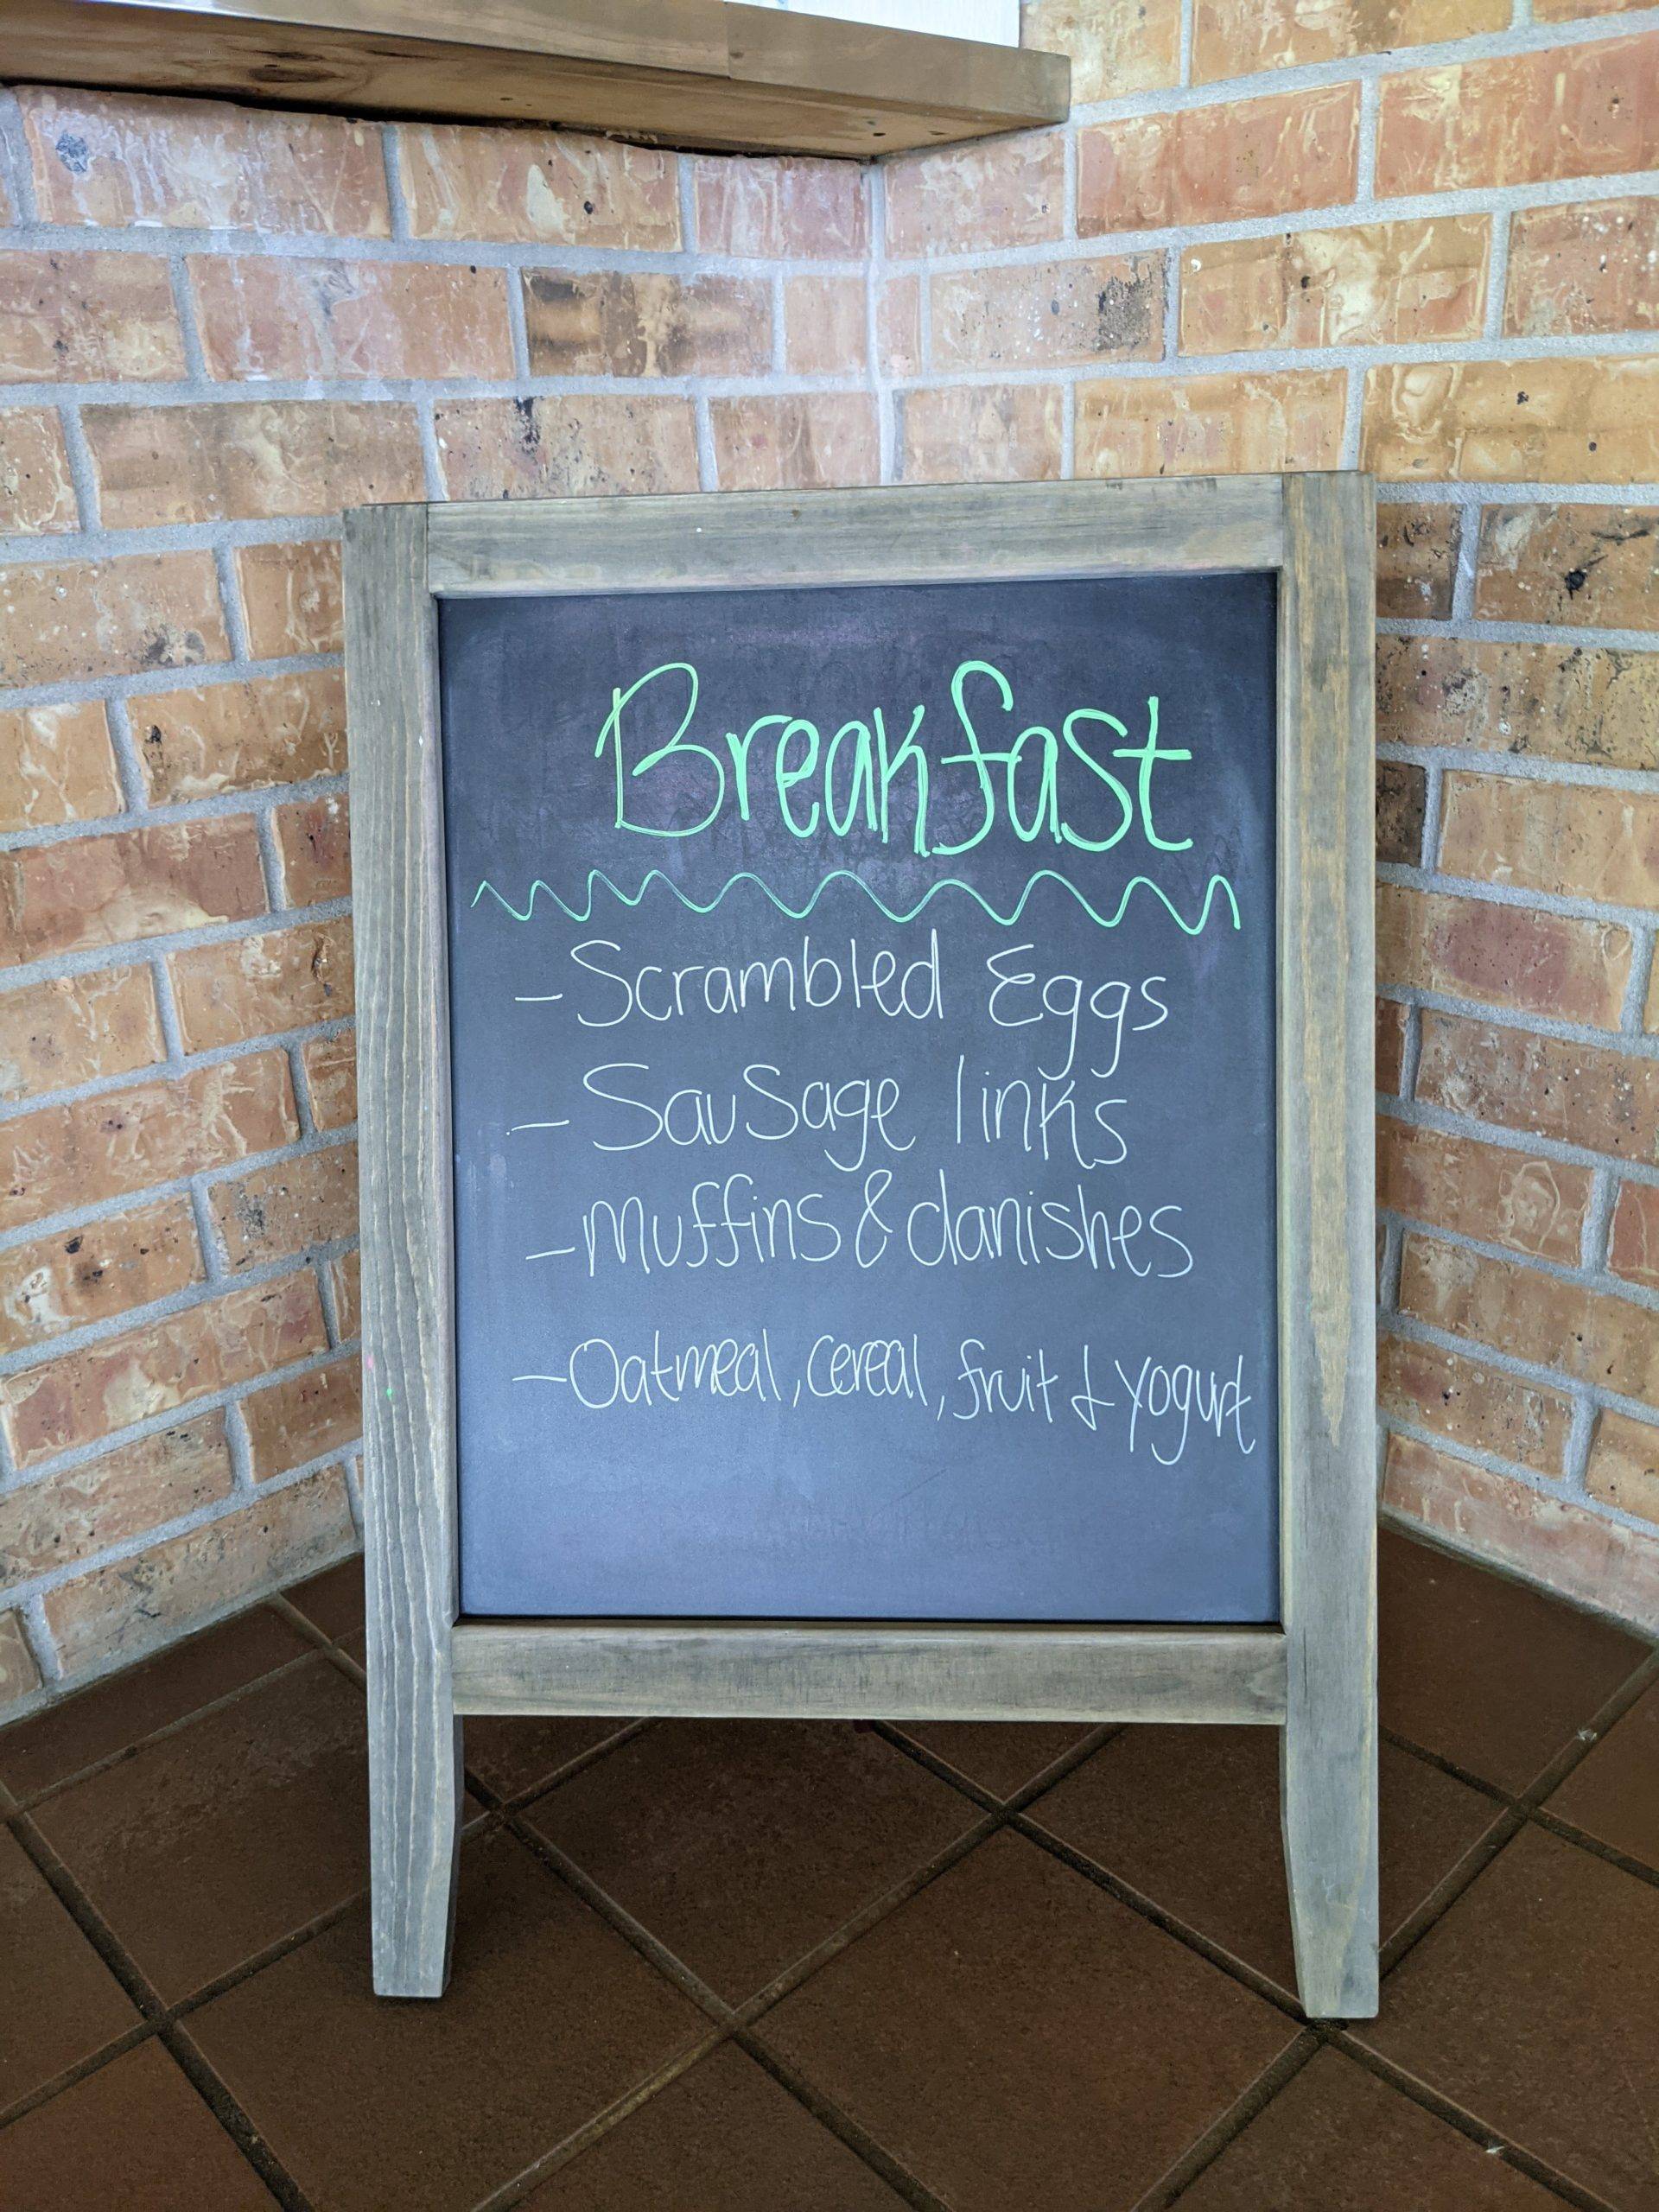 Breakfast
- Scrambled Eggs
- Sausage links
- muffins & danishes
- Oatmeal, cereal, fruit & yogurt